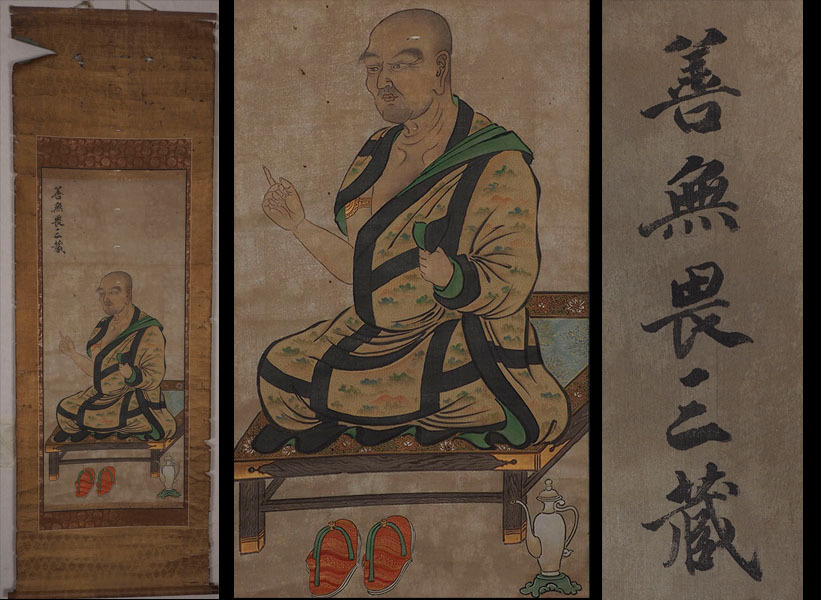 善無畏三蔵
善無畏三蔵